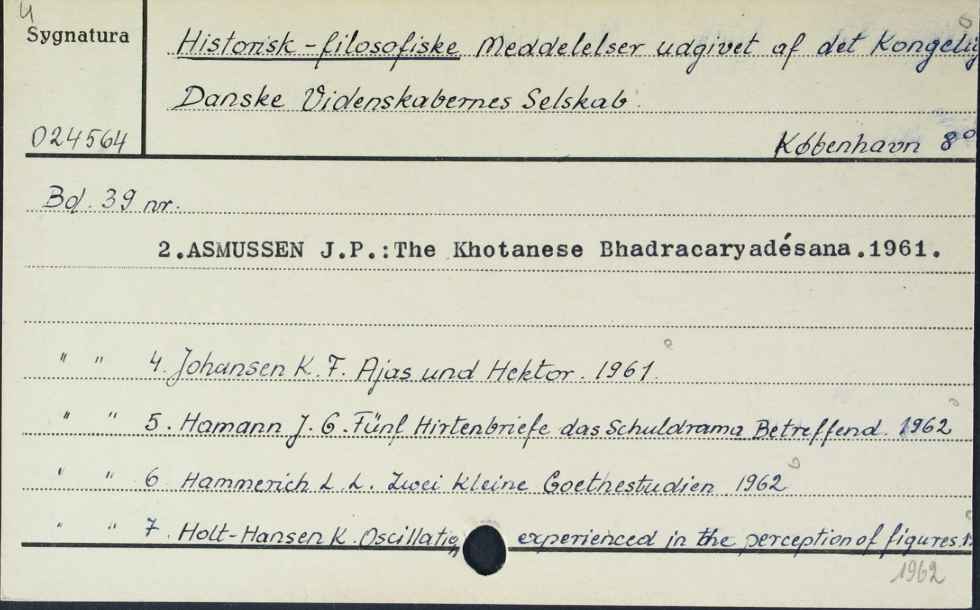 4
Sygnatura
Historisk-filosofiske Meddelelser udgivet af det Kongelig
Danske Videnskabernes Selskab.
024564
København 8°
Bd. 39 nr.
2.ASMUSSEN J.P.:The Khotanese Bhadracaryadésana.1961.
" " 4. Johansen K. F. Ajas und Hektor. 1961.
" " 5. Hamann J. G. Fünf Hirtenbriefe das Schuldrama Betreffend. 1962
" " 6 Hammerich L. L. Zwei kleine Goethestudien 1962
" " 7. Holt-Hansen K. Oscillation experienced in the perception of figures.
1962